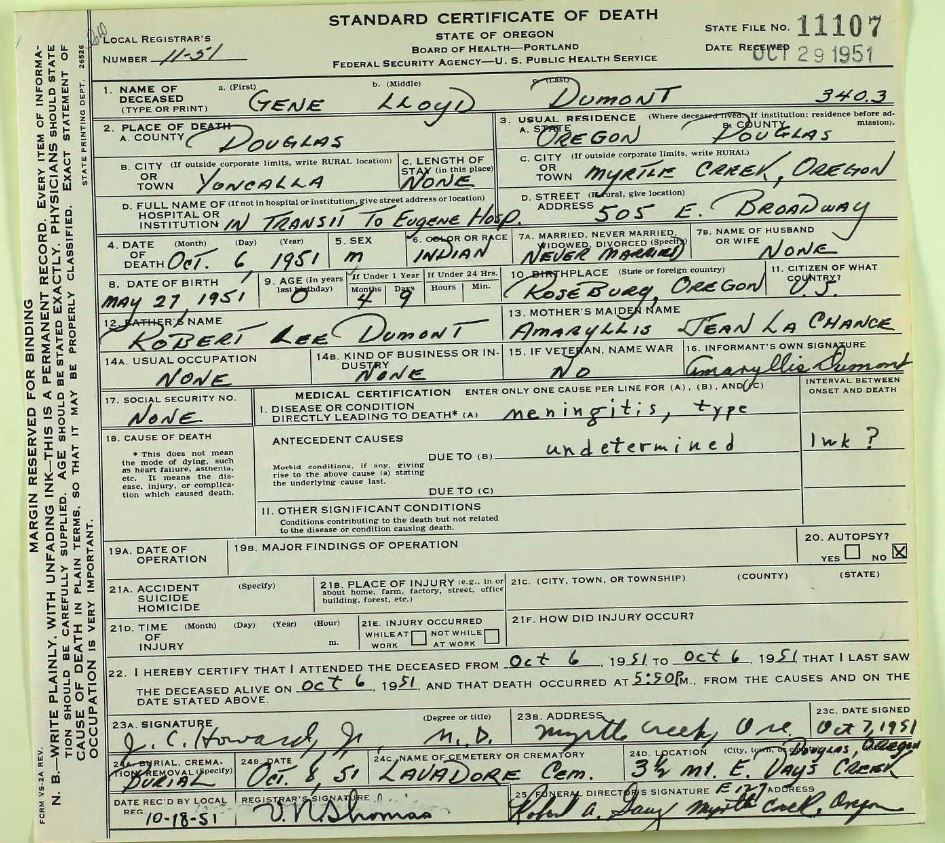 STANDARD CERTIFICATE OF DEATH
STATE OF OREGON
BOARD OF HEALTH—PORTLAND
FEDERAL SECURITY AGENCY—U. S. PUBLIC HEALTH SERVICE
LOCAL REGISTRAR'S
NUMBER 11-51
STATE FILE NO. 11107
DATE RECEIVED OCT 29 1951
1. NAME OF DECEASED (TYPE OR PRINT) a. (First) GENE b. (Middle) LLOYD c. (Last) DUMONT 340.3
2. PLACE OF DEATH
A. COUNTY DOUGLAS
3. USUAL RESIDENCE (Where deceased lived. If institution: residence before admission).
A. STATE OREGON B. COUNTY DOUGLAS
B. CITY (If outside corporate limits, write RURAL location) OR TOWN YONCALLA
C. LENGTH OF STAY (in this place) NONE
C. CITY (If outside corporate limits, write RURAL) OR TOWN MYRTLE CREEK, OREGON
D. FULL NAME OF (If not in hospital or institution, give street address or location) HOSPITAL OR INSTITUTION IN TRANSIT TO EUGENE HOSP.
D. STREET (If rural, give location) ADDRESS 505 E. BROADWAY
4. DATE OF DEATH (Month) (Day) (Year) OCT. 6 1951
5. SEX M
6. COLOR OR RACE INDIAN
7A. MARRIED, NEVER MARRIED, WIDOWED, DIVORCED (Specify) NEVER MARRIED
7B. NAME OF HUSBAND OR WIFE NONE
8. DATE OF BIRTH MAY 27 1951
9. AGE (In years last birthday) 0 If Under 1 Year Months 4 Days 9 If Under 24 Hrs. Hours Min.
10. BIRTHPLACE (State or foreign country) ROSEBURG, OREGON
11. CITIZEN OF WHAT COUNTRY? U.S.
12. FATHER'S NAME ROBERT LEE DUMONT
13. MOTHER'S MAIDEN NAME AMARYLLIS JEAN LA CHANCE
14A. USUAL OCCUPATION NONE
14B. KIND OF BUSINESS OR INDUSTRY NONE
15. IF VETERAN, NAME WAR NO
16. INFORMANT'S OWN SIGNATURE Amaryllis Dumont
17. SOCIAL SECURITY NO. NONE
MEDICAL CERTIFICATION ENTER ONLY ONE CAUSE PER LINE FOR (A), (B), AND (C)
INTERVAL BETWEEN ONSET AND DEATH
I. DISEASE OR CONDITION DIRECTLY LEADING TO DEATH* (A) meningitis, type
18. CAUSE OF DEATH
* This does not mean the mode of dying, such as heart failure, asthenia, etc. It means the disease, injury, or complication which caused death.
ANTECEDENT CAUSES
DUE TO (B) undetermined 1wk ?
Morbid conditions, if any, giving rise to the above cause (a) stating the underlying cause last.
DUE TO (C)
II. OTHER SIGNIFICANT CONDITIONS
Conditions contributing to the death but not related to the disease or condition causing death.
19A. DATE OF OPERATION
19B. MAJOR FINDINGS OF OPERATION
20. AUTOPSY? YES NO X
21A. ACCIDENT SUICIDE HOMICIDE (Specify)
21B. PLACE OF INJURY (e.g., in or about home, farm, factory, street, office building, forest, etc.)
21C. (CITY, TOWN, OR TOWNSHIP) (COUNTY) (STATE)
21D. TIME OF INJURY (Month) (Day) (Year) (Hour) m.
21E. INJURY OCCURRED WHILE AT WORK NOT WHILE AT WORK
21F. HOW DID INJURY OCCUR?
22. I HEREBY CERTIFY THAT I ATTENDED THE DECEASED FROM Oct 6, 1951 TO Oct 6, 1951 THAT I LAST SAW
THE DECEASED ALIVE ON Oct 6, 1951, AND THAT DEATH OCCURRED AT 5:50 P M., FROM THE CAUSES AND ON THE
DATE STATED ABOVE.
23A. SIGNATURE (Degree or title) J. C. Howard, Jr. M.D.
23B. ADDRESS Myrtle Creek, Ore.
23C. DATE SIGNED Oct 7, 1951
24A. BURIAL, CREMATION, REMOVAL (Specify) BURIAL
24B. DATE OCT. 8, 51
24C. NAME OF CEMETERY OR CREMATORY LAVADORE CEM.
24D. LOCATION (City, town, or Douglas, Oregon
3½ MI. E. DAYS CREEK
DATE REC'D BY LOCAL REG. 10-18-51
REGISTRAR'S SIGNATURE
25. FUNERAL DIRECTOR'S SIGNATURE E177 ADDRESS
Robert A. Myrtle Creek, Oregon
MARGIN RESERVED FOR BINDING
N. B.—WRITE PLAINLY, WITH UNFADING INK—THIS IS A PERMANENT RECORD. EVERY ITEM OF INFORMA-
TION SHOULD BE CAREFULLY SUPPLIED. AGE SHOULD BE STATED EXACTLY. PHYSICIANS SHOULD STATE
CAUSE OF DEATH IN PLAIN TERMS, SO THAT IT MAY BE PROPERLY CLASSIFIED. EXACT STATEMENT OF
OCCUPATION IS VERY IMPORTANT.
FORM VS-2A REV.
STATE PRINTING DEPT. 26526